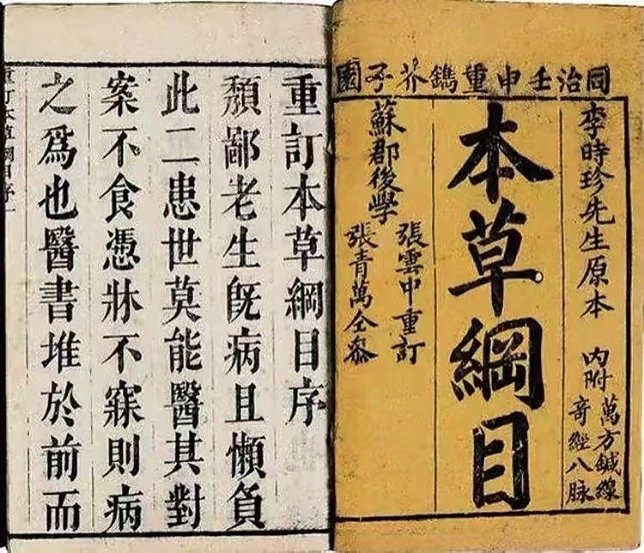 同治壬申重鐫芥子園
李時珍先生原本
內附萬方鍼線
奇經八脉
本草綱目
張雲中重訂
蘇郡後學
張青萬仝叅
重訂本草綱目序
頽鄙老生旣病且懶負
此二患世莫能醫其對
案不食憑牀不寐則病
之爲也醫書堆於前而